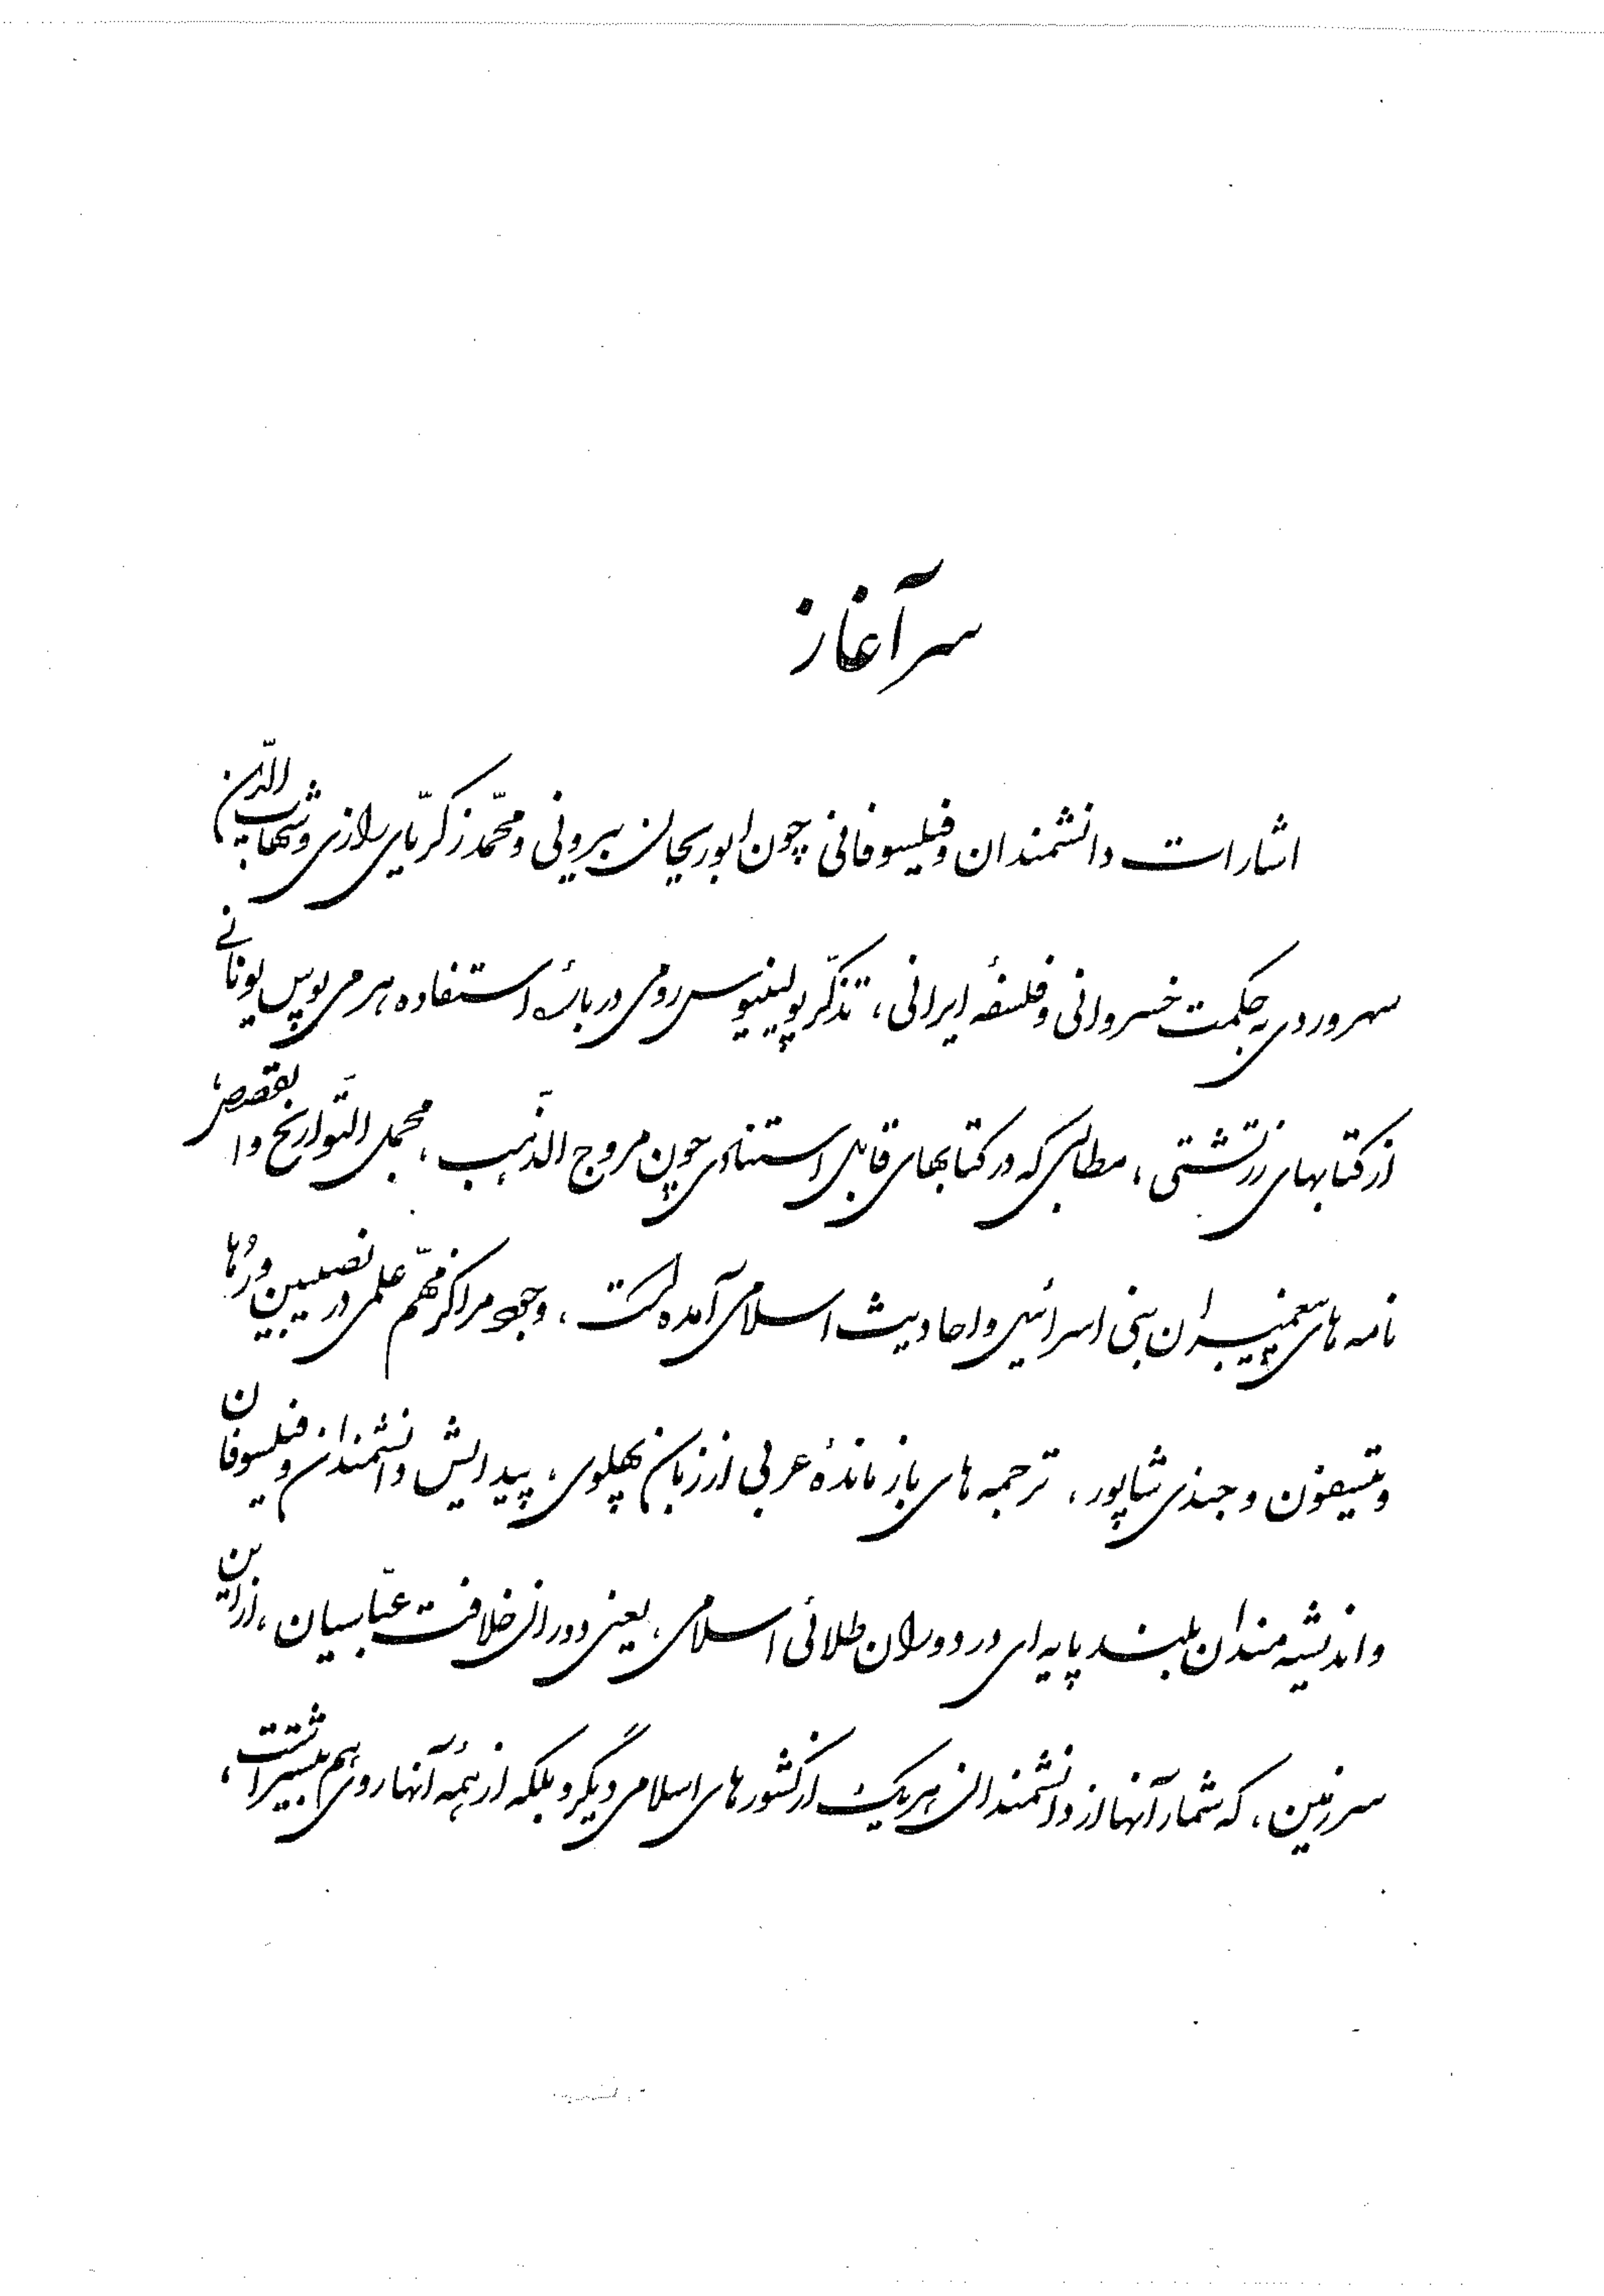 سرآغاز
اشارات دانشمندان و فیلسوفانی چون ابوریحان بیرونی و محمّد زکریّای رازی و شهاب الدّین
سهروردی به حکمت خسروانی و فلسفهٔ ایرانی، تذکّر پولینیوس رومی دربارهٔ استفاده هرمی پوس یونانی
از کتابهای زرتشتی، مطالبی که در کتابهای قابل استنادی چون مروج الذَهب، مجمل التَّواریخ والقصص،
نامه های پیغمبران بنی اسرائیل و احادیث اسلامی آمده است، وجود مراکز مهمّ علمی در نصیبین و رُها
و تیسفون و جندی شاپور، ترجمه های بازماندهٔ عربی از زبان پهلوی، پیدایش دانشمندان و فیلسوفان
و اندیشه مندان بلند پایه ای در دوران طلائی اسلامی، یعنی دوران خلافت عبّاسیان، از این
سرزمین، که شمار آنها از دانشمندان هر یک از کشورهای اسلامی دیگر و بلکه از همهٔ آنها روی هم بیشتر است،